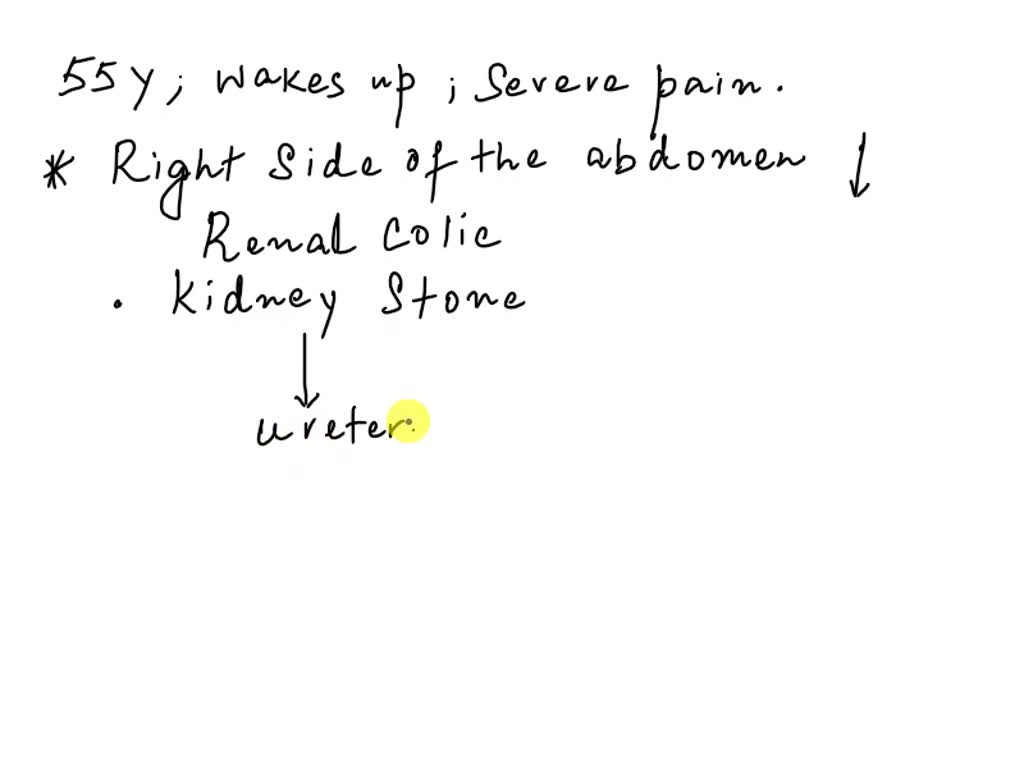 55y; wakes up; severe pain.
* Right side of the abdomen ↓
Renal Colic
. Kidney Stone
↓
ureter.